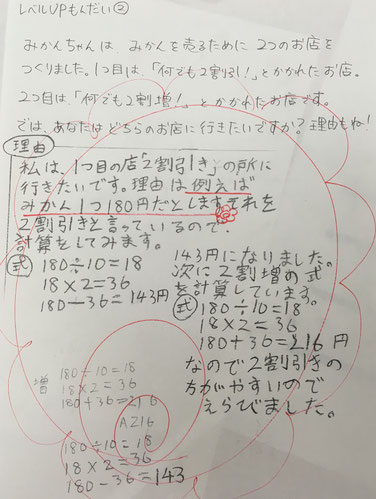 レベルUPもんだい②
みかんちゃんは、みかんを売るために2つのお店を
つくりました。1つ目は、「何でも2割引!」とかかれたお店。
2つ目は「何でも2割増!」とかかれたお店です。
では、あなたはどちらのお店に行きたいですか?理由もね!
理由
私は、1つ目の店「2割引き」の所に
行きたいです。理由は例えば
みかん1つ180円だとしますそれを
2割引きと言っているので、
計算をしてみます。
式
180÷10=18
18×2=36
180-36=143円
143円になりました。
次に2割増の式
を計算しています。
式
180÷10=18
18×2=36
180+36=216円
なので2割引きの
方がやすいので
えらびました。
増
180÷10=18
18×2=36
180+36=216
A216
180÷10=18
18×2=36
180-36=143